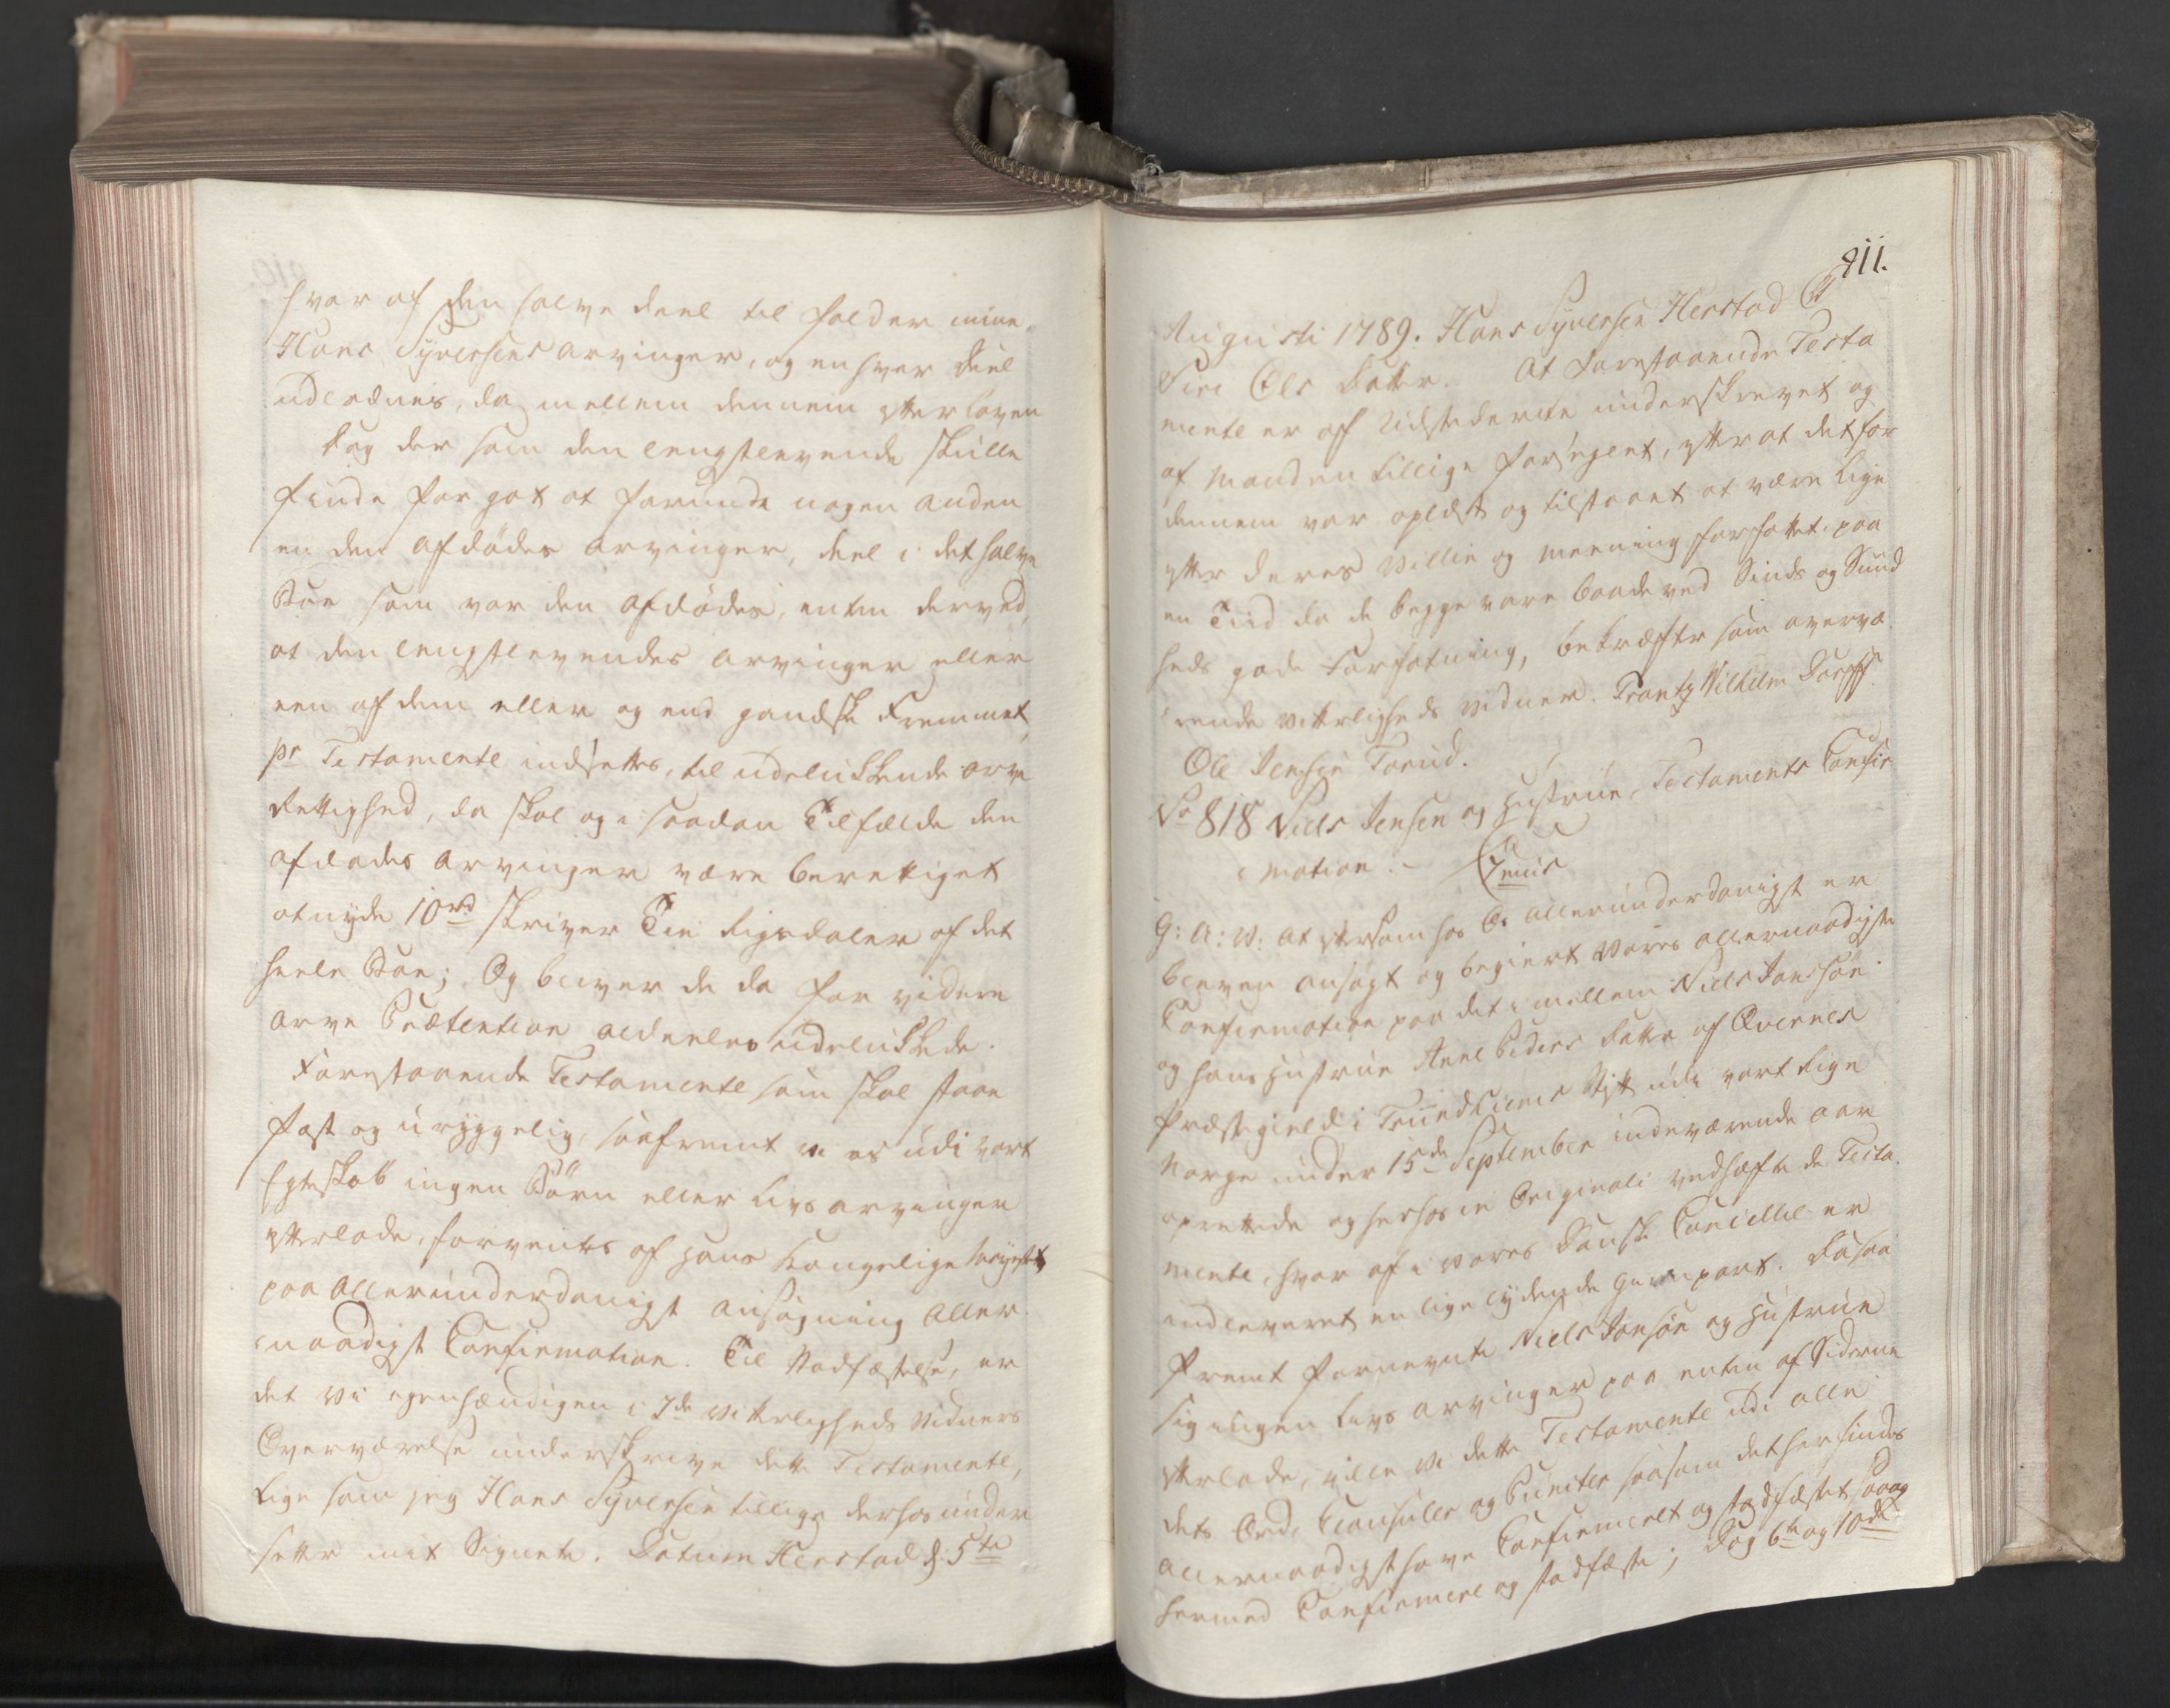 hvor af den halve deel til falder mine
Hans Syversens arvinger, og enhver deel
udlednes, da mellem dennem efter loven
Dog der som den lengstlevende skulle
finde for got at forunde nogen anden
en den afdödes arvinger, deel i det halve
Boe som var den afdödes, enten derved,
at den lengstlevendes arvinger eller
een af dem eller og end gandske Fremmet,
pr Testamente indsettes, til udelukkende arve
Rettighed, da skal og i saadan Tilfælde den
afdödes arvinger være berettiget
at nyde 10 rd skriver Tie Rigsdaler af det
heele Boe; Og bliver de da for videre
arve Prætention aldeeles udelukkede.
Forestaaende Testamente som skal staae
fast og uryggelig, saafremt vi os udi vort
Egteskab ingen Börn eller Livs arvinger
efterlade, forventes af Hans Kongelige Mayestt
paa allerunderdanigst ansögning aller
naadigst Confirmation. Til Stadfæstelse, er
det vi egenhændigen i 2de vitterligheds Vidners
Overværelse underskrive dette Testamente,
lige som jeg Hans Syversen tillige derhos under
setter mit Signete. Datum Herstad d: 5te
811.
Augusti 1789. Hans Syversen Herstad
Siri Ols Datter. At Forestaaende Testa
mente er af Udstederne underskrevet og
af Manden tillige forseglet, efter at det for
dennem var oplæst og tilstaaet at være lige
efter deres Villie og Meening forfattet paa
en Tiid da de begge vare baade ved Sinds og Sund
heds gode Forfatning, bekræfter som overvæ
rende vitterligheds Vidner. Frantz Wilhelm Dorff.
Ole Jensen Torud.
No 818 Niels Jensen og Hustrue, Testaments Confir
mation.
G: A: V: At eftersom hos Os allerunderdanigst er
bleven ansögt og begiert Vores allernaadigste
Confirmation paa det i mellem Niels Jonsön
og hans Hustrue Anne Peders Datter af Qvernes
Præstegield i Trundhiems Stift udi vort Rige
Norge under 15de September indeværende aar
oprettede og herhos in Originali vedhæftede Testa
mente, hvor af i vores Danske Cancellie er
indleveret en lige lydende Gienpart. Da saa
fremt fornevnte Niels Jonsön og Hustrue
sig ingen Livs arvinger paa enten af Siderne
efterlade, ville vi dette Testamente udi alle
dets Ord, Clausuler og Puncter saasom det her findes
allernaadigst have Confirmeret og stadfæstet saa og
hermed Confirmere og stadfæste; Dog 6te og 10de